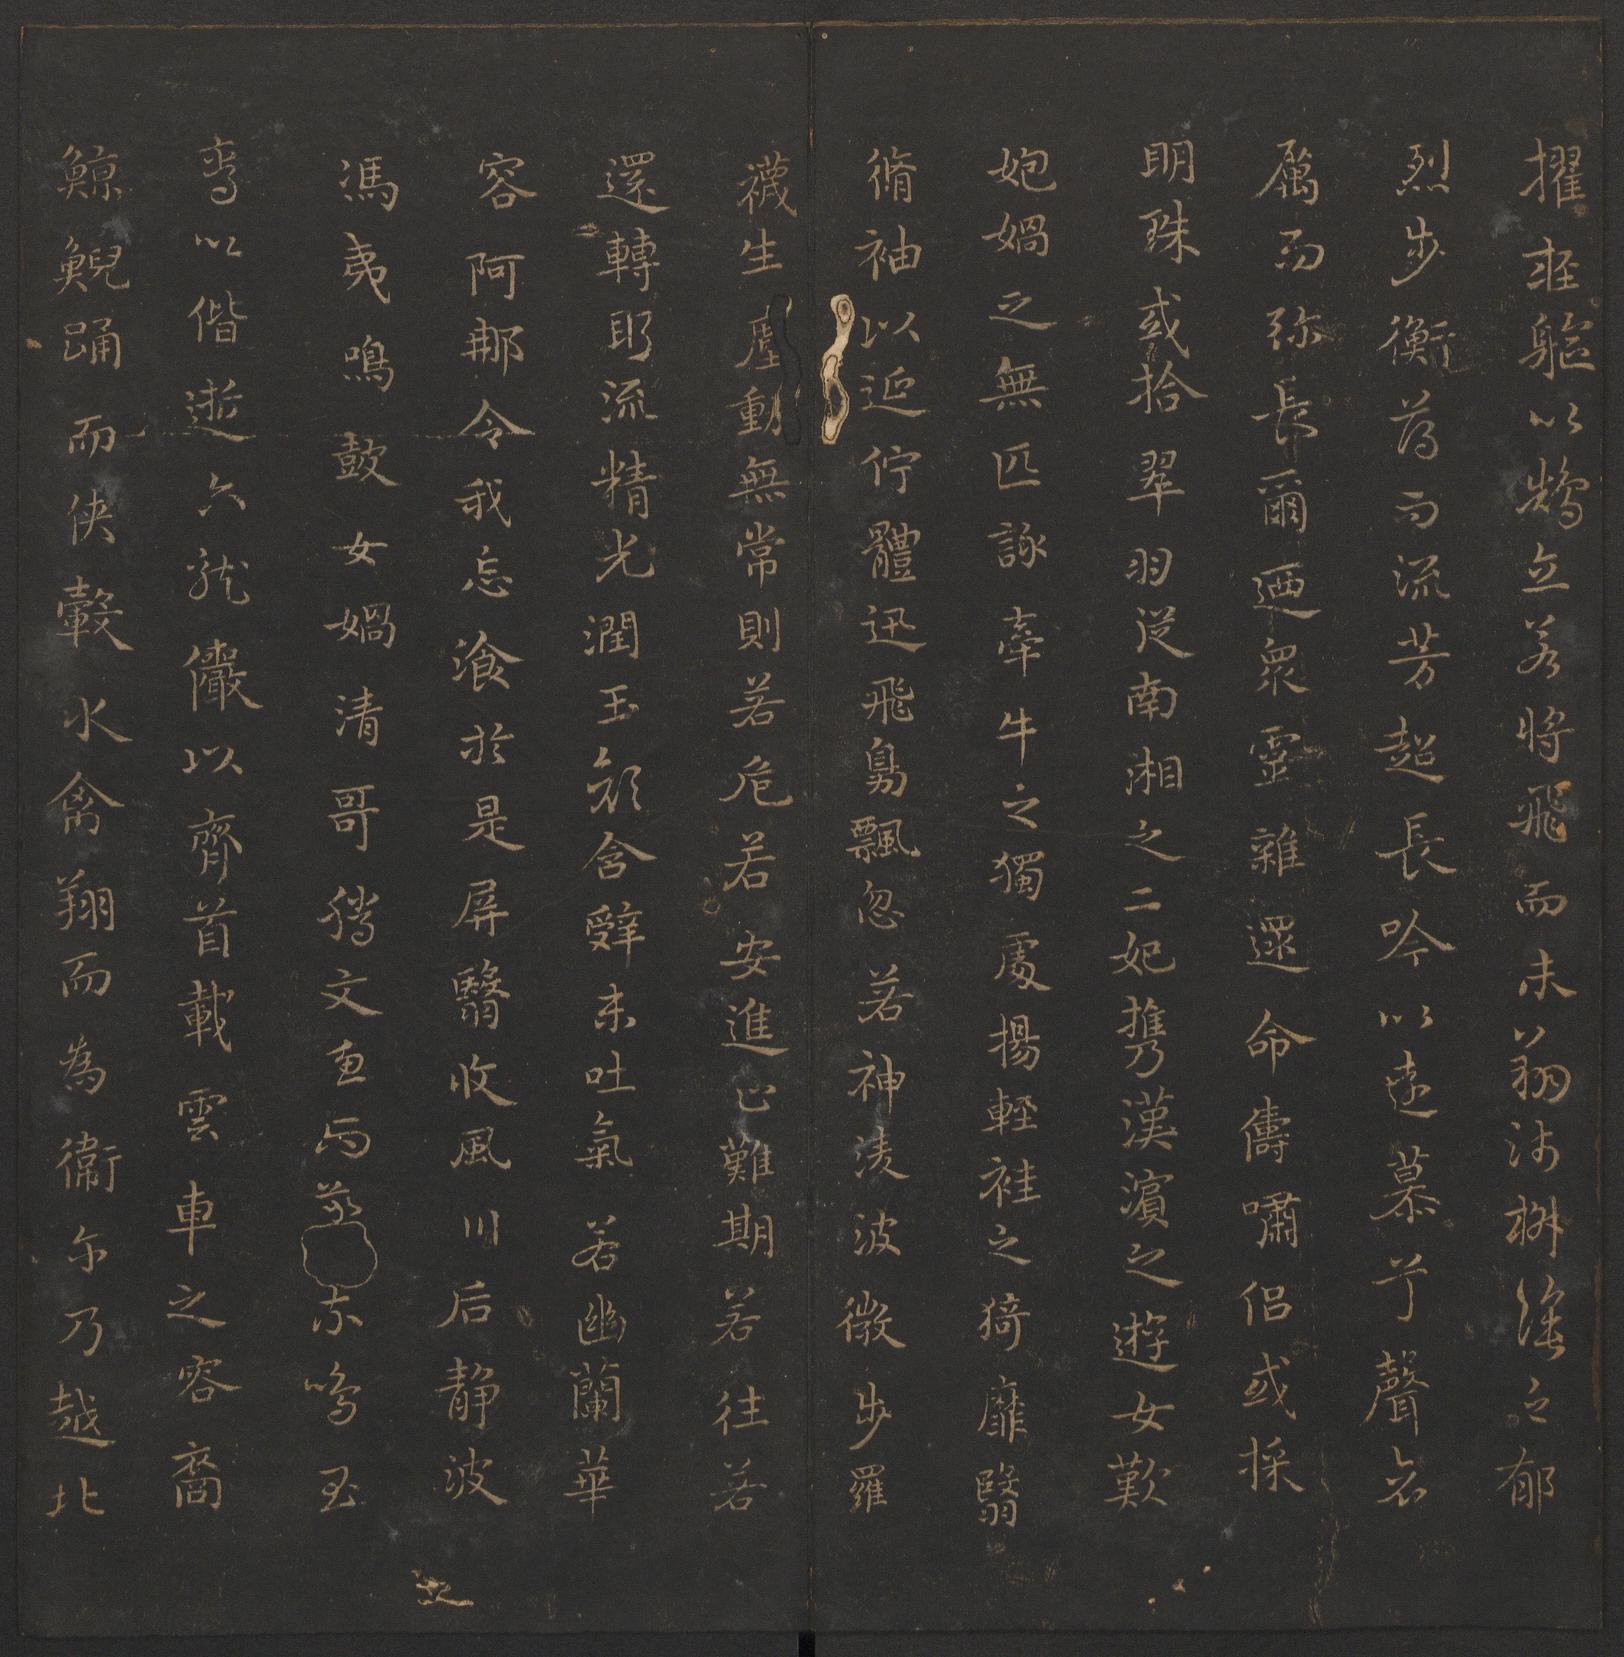 擢軽軀以鶴立若將飛而未翔涉椒塗之郁
烈步衡薄而流芳超長吟以遠慕兮聲哀
厲而弥長爾迺衆靈雜遝命儔嘯侶或採
明珠或拾翠羽従南湘之二妃攜漢濱之遊女歎
㚿媧之無匹詠牽牛之獨處揚軽袿之猗靡翳
脩袖以延佇體迅飛鳧飄忽若神淩波微步羅
襪生塵動無常則若危若安進止難期若往若
還轉眄流精光潤玉顔含辝未吐氣若幽蘭華
容阿那令我忘飡於是屏翳收風川后靜波
馮夷鳴鼓女媧清哥騰文魚而警㐀鳴玉
鸞以偕逝六龍儼以齊首載雲車之容裔
鯨鯢踊而俠轂水禽翔而為衞尓乃越北